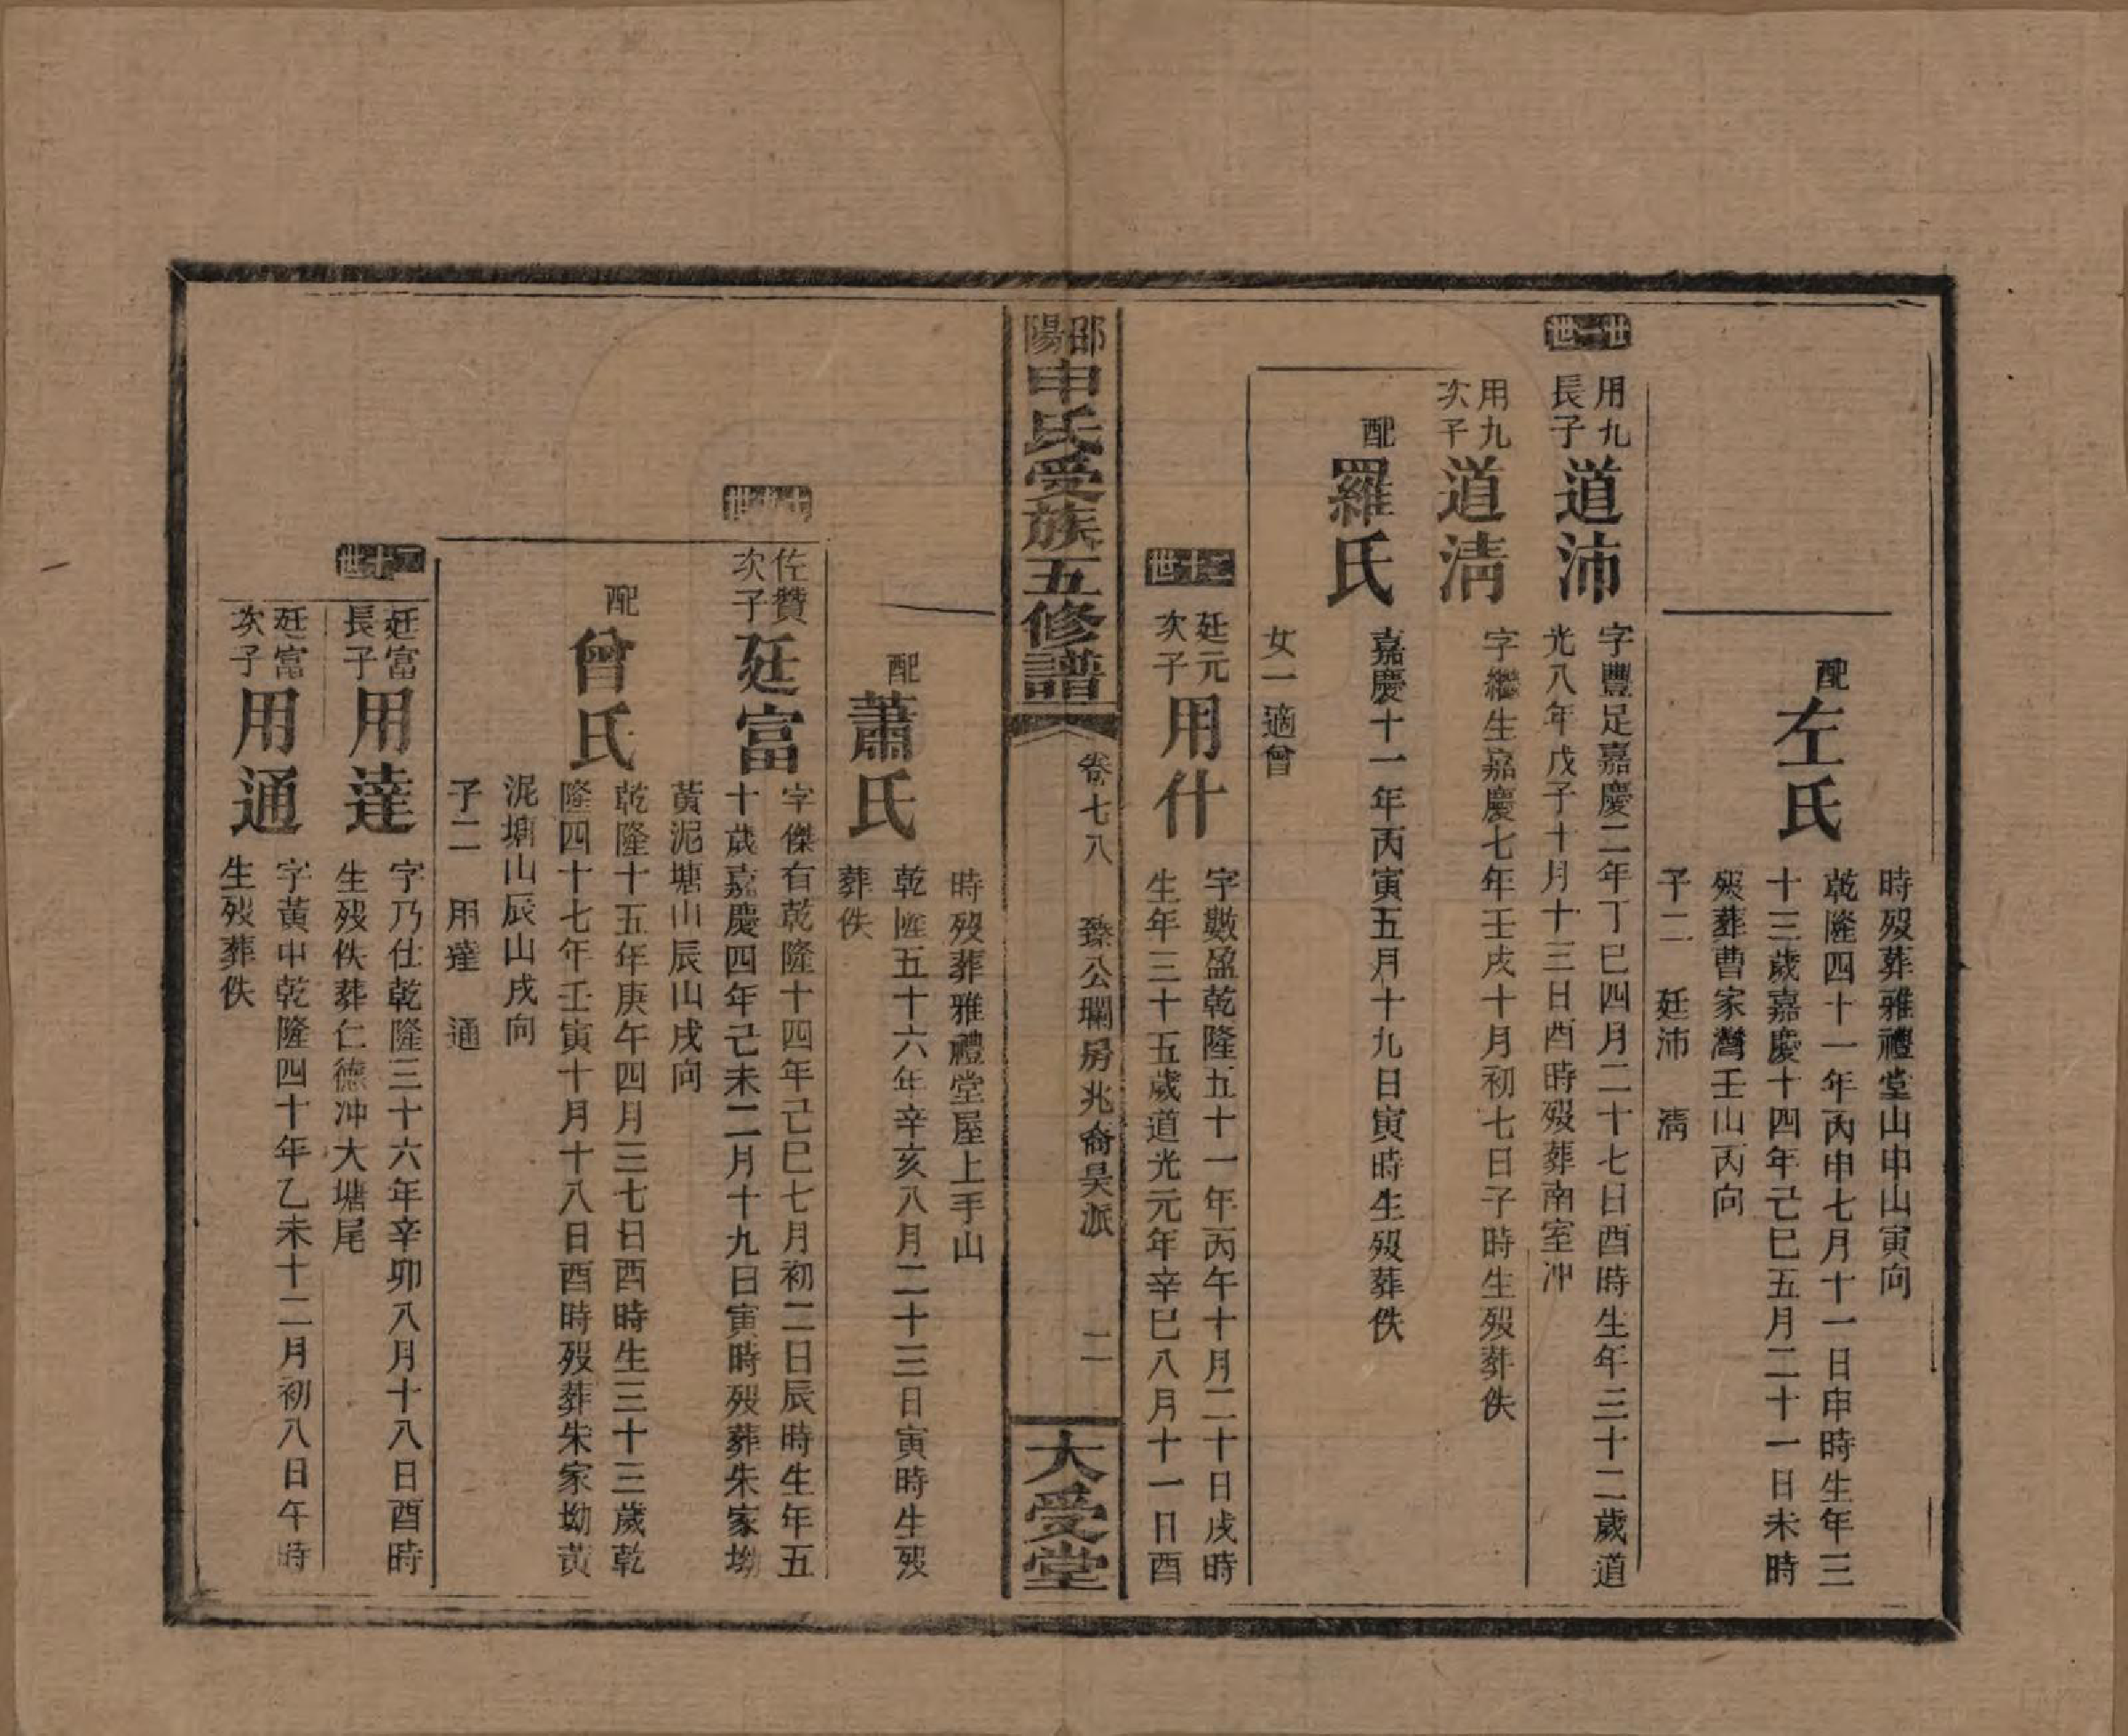 時歿葬雅禮堂山申山寅向
配
左氏
乾隆四十一年丙申七月十一日申時生年三
十三歲嘉慶十四年己巳五月二十一日未時
歿葬曹家灣壬山丙向
子二　廷沛　清
廿一世
用九
長子
道沛
字豐足嘉慶二年丁巳四月二十七日酉時生年三十二歲道
光八年戊子十月十三日酉時歿葬南室冲
用九
次子
道清
字繼生嘉慶七年壬戌十月初七日子時生歿葬佚
配
羅氏
嘉慶十一年丙寅五月十九日寅時生歿葬佚
女一適曾
二十世
廷元
次子
用什
字數盈乾隆五十一年丙午十月二十日戌時
生年三十五歲道光元年辛巳八月十一日酉
邵陽
申氏受族五修譜
卷七八
臻公瓓房兆裔昊派
二
大受堂
時歿葬雅禮堂屋上手山
配
蕭氏
乾隆五十六年辛亥八月二十三日寅時生歿
葬佚
十九世
佐贊
次子
廷富
字傑有乾隆十四年己巳七月初二日辰時生年五
十歲嘉慶四年己未二月十九日寅時歿葬朱家坳
黃泥塘山辰山戌向
配
曾氏
乾隆十五年庚午四月三七日酉時生三十三歲乾
隆四十七年壬寅十月十八日酉時歿葬朱家坳黃
泥塘山辰山戌向
子二　用達　通
二十世
廷富
長子
用達
字乃仕乾隆三十六年辛卯八月十八日酉時
生歿佚葬仁德冲大塘尾
廷富
次子
用通
字黃中乾隆四十年乙未十二月初八日午時
生歿葬佚